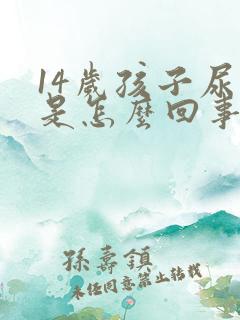 14歲孩子尿
是怎麼回事
孫壽鎮
未经同意禁止转载